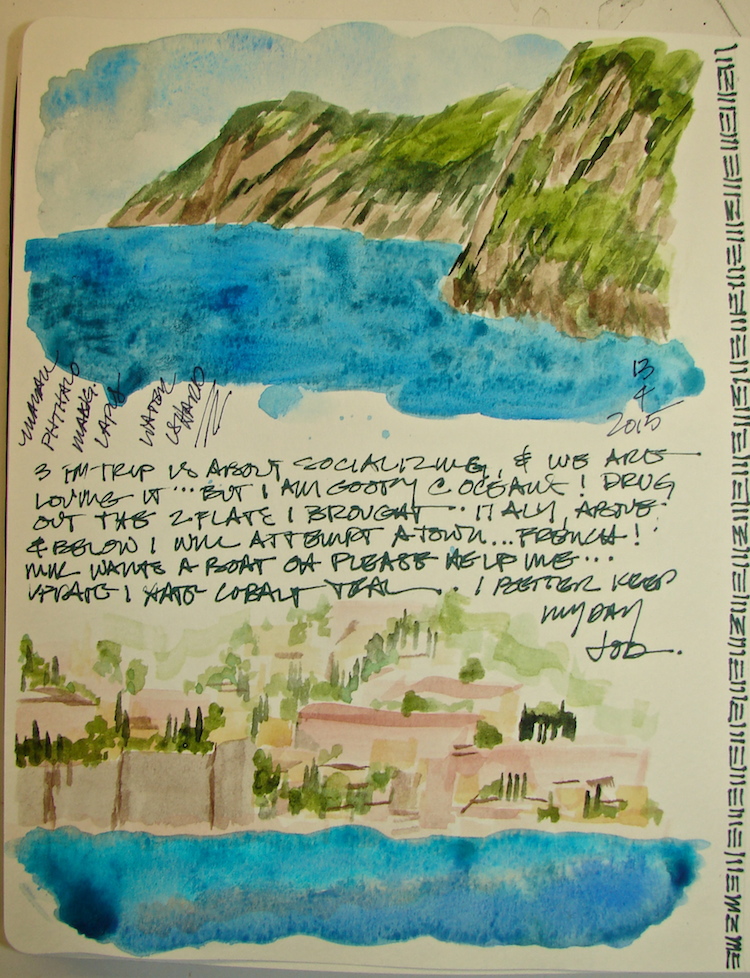 PHTHALO
MANG.
LAPIS
WATER
IS HARD
13
4
2015
3 TM-TRIP IS ABOUT SOCIALIZING, & WE ARE
LOVING IT... BUT I AM GOOFY C OCEANS! DRUG
OUT THE 2 FLATS I BROUGHT.. ITALY, ABOVE
& BELOW I WILL ATTEMPT A TOWN... FRENCH!
WANTS A BOAT OH PLEASE HELP ME...
UPDATE I HATE COBALT TEAL... I BETTER KEEP
MY DAY
JOB.